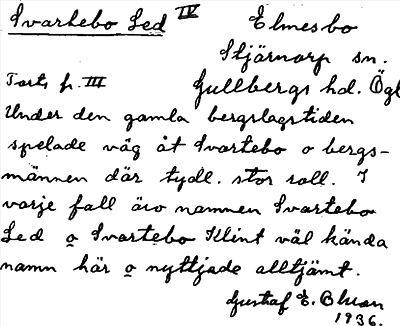 Svartebo Led IV
Elmesbo
Stjärnorp sn.
Forts. fr. III
Gullbergs hd. Ögl
Under den gamla bergslagstiden
spelade väg åt Svartebo o bergs-
männen där tydl. stor roll. I
varje fall äro namnen Svartebo
Led o Svartebo Klint väl kända
namn här o nyttjade alltjämt.
Gustaf E.
1936.